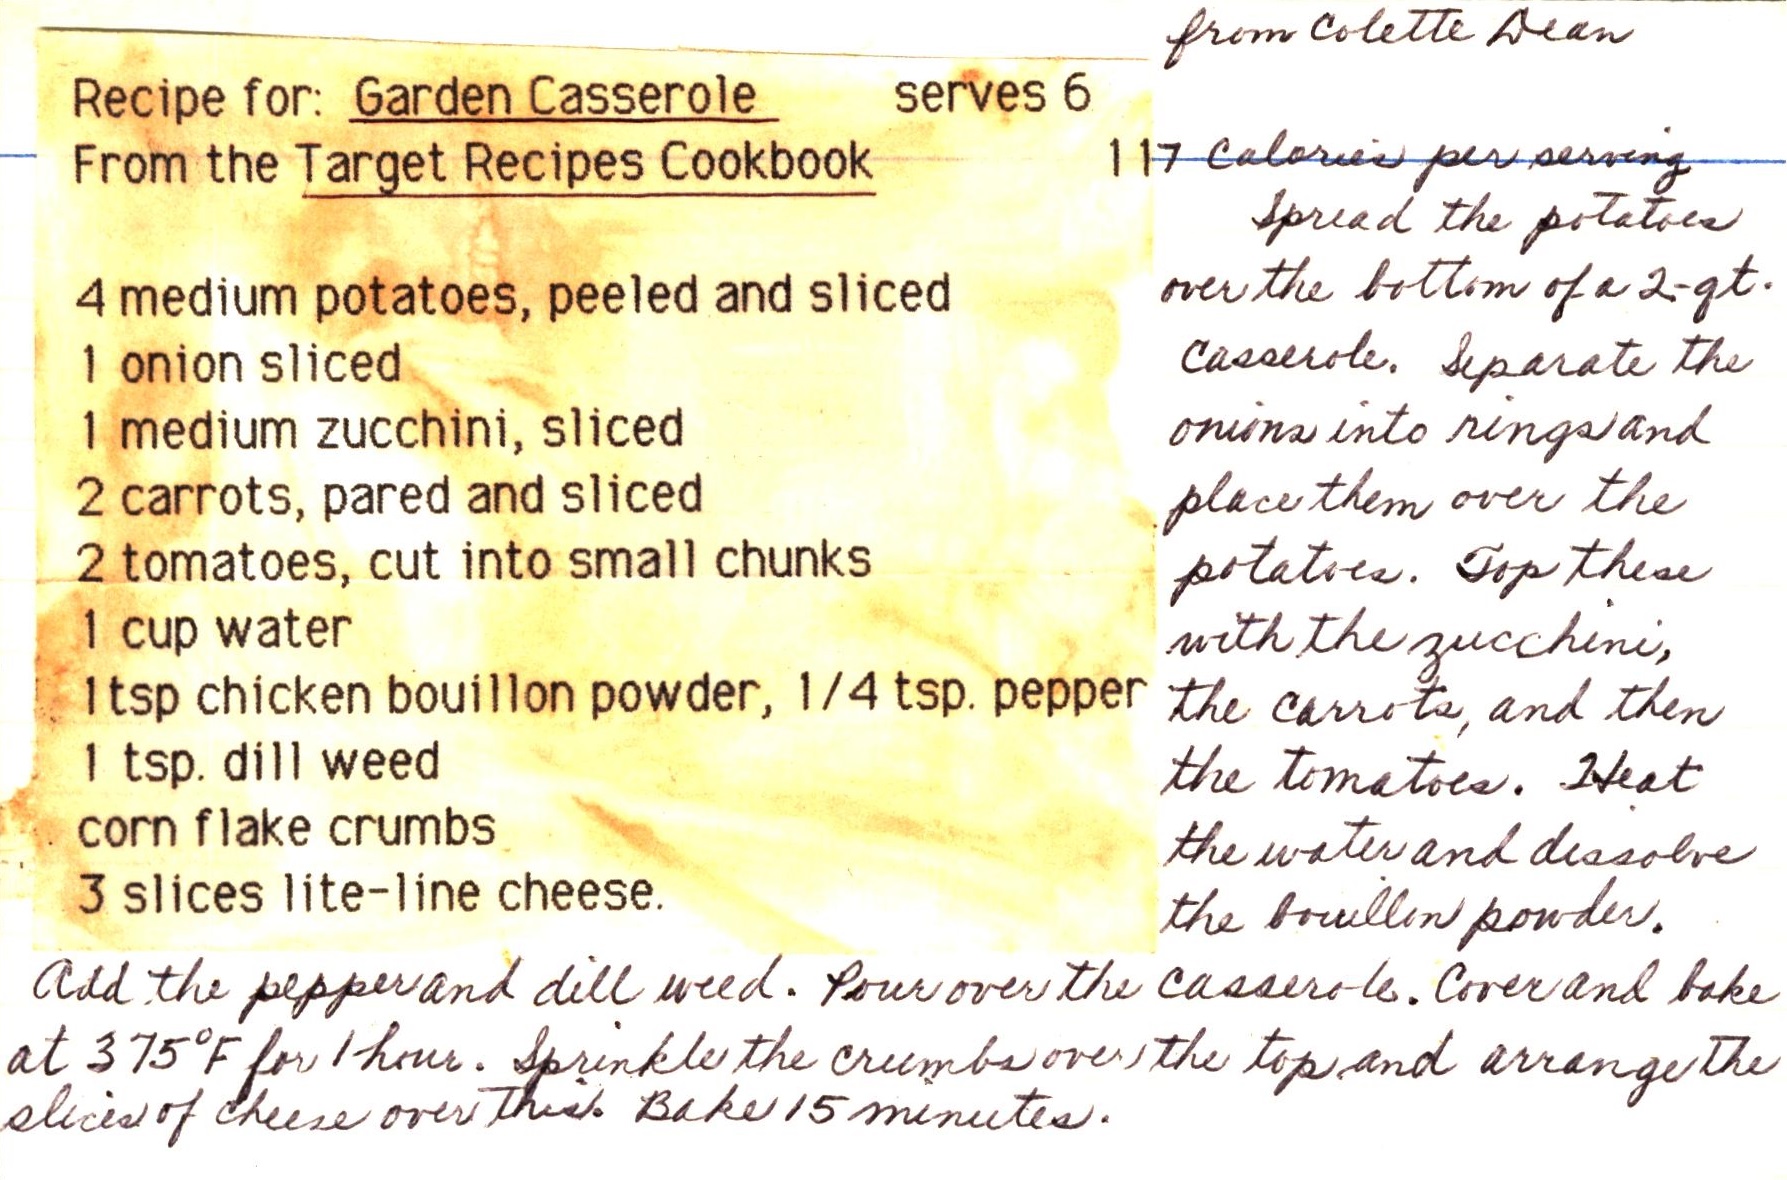 from Colette Dean
Recipe for: Garden Casserole serves 6
From the Target Recipes Cookbook 117 Calories per serving
4 medium potatoes, peeled and sliced
1 onion sliced
1 medium zucchini, sliced
2 carrots, pared and sliced
2 tomatoes, cut into small chunks
1 cup water
1 tsp chicken bouillon powder, 1/4 tsp. pepper
1 tsp. dill weed
corn flake crumbs
3 slices lite-line cheese.
Spread the potatoes
over the bottom of a 2-qt.
casserole. Separate the
onions into rings and
place them over the
potatoes. Top these
with the zucchini,
the carrots, and then
the tomatoes. Heat
the water and dissolve
the bouillon powder.
Add the pepper and dill weed. Pour over the casserole. Cover and bake
at 375°F for 1 hour. Sprinkle the crumbs over the top and arrange the
slices of cheese over this. Bake 15 minutes.